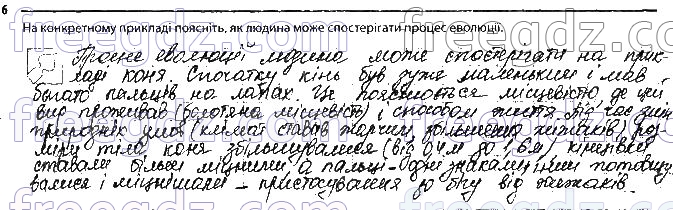 6
На конкретному прикладі поясніть, як людина може спостерігати процес еволюції.
Процес еволюції людина може спостерігати на прик-
ладі коня. Спочатку кінь був дуже маленьким і мав
багато пальців на лапах. Це пояснюється місцевістю де цей
вид проживав (болотяна місцевість) і способом життя. Під час змін
природніх умов (клімат ставав жарким, збільшено хижаків) роз-
міри тіла коня збільшувалися (від 0,4 м до 1,6 м) кінцівки
ставали більш міцними, а пальці потовщу-
валися і міцнішали – пристосування до бігу від хижаків.